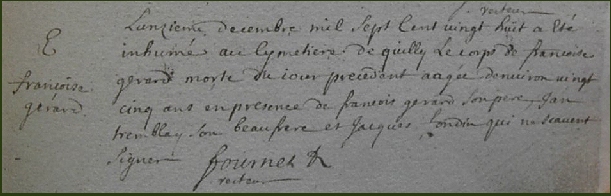 recteur
Lunzieme decembre mil Sept Cent vingt huit a Eté
E
inhumé au Cymetiere de quilly Le corps de francoise
francoise
gerard morte du iour precedent aagee denviron vingt
gerard
cinq ans en presence de francois gerard son pere, Jan
tremblay son beaufrere et Jacques qui ne scavent
Signer
fournet
recteur